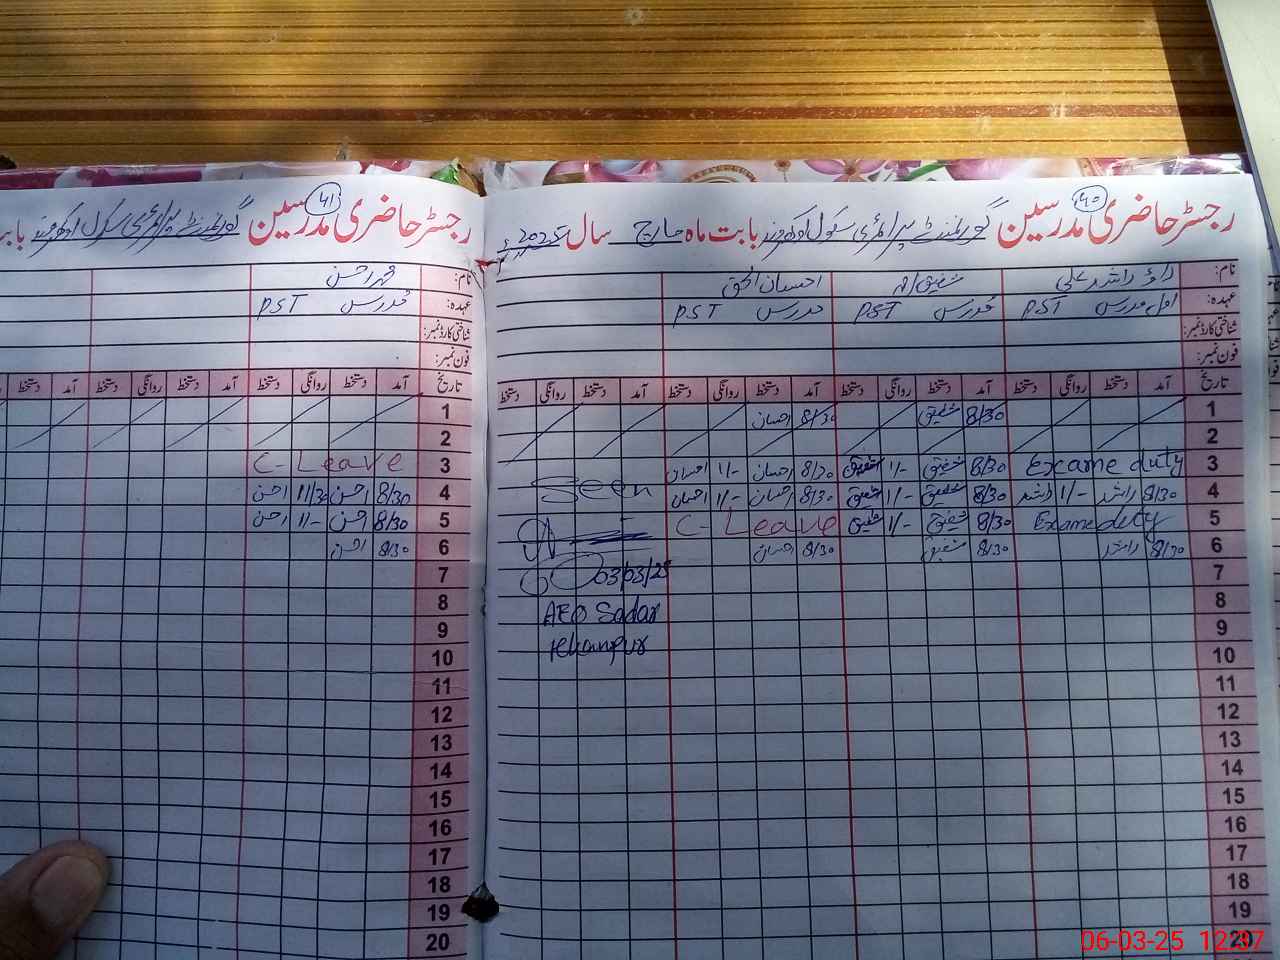 رجسٹر حاضری مدرسین گورنمنٹ پرائمری سکول بابت ماہ مارچ سال 2025ء
۴۰
نام: راؤ راشد علی شفیق احسان الحق
عہدہ: اول مدرس PST مدرس PST مدرس PST
شناختی کارڈ نمبر:
فون نمبر:
تاریخ آمد دستخط روانگی دستخط آمد دستخط روانگی دستخط آمد دستخط روانگی دستخط آمد دستخط روانگی دستخط
1 8/30 شفیق 8/30 احسان
2
3 Exame duty 8/30 شفیق 1/- شفیق 8/30 احسان 1/- احسان
4 8/30 راشد 1/- راشد 8/30 شفیق 1/- شفیق 8/30 احسان 1/- احسان
Seen
5 Exame duty 8/30 شفیق 1/- شفیق C- Leave
6 8/30 راشد 8/30 شفیق 8/30 احسان
7
03/03/25
8
AEO Sadar
9
10
11
12
13
14
15
16
17
18
19
20
رجسٹر حاضری مدرسین گورنمنٹ پرائمری سکول بابت
۴۱
نام: احسن
عہدہ: مدرس PST
شناختی کارڈ نمبر:
فون نمبر:
تاریخ آمد دستخط روانگی دستخط آمد دستخط روانگی دستخط آمد دستخط
1
2
3 C- Leave
4 8/30 احسن 11/30 احسن
5 8/30 احسن 1/- احسن
6 8/30 احسن
7
8
9
10
11
12
13
14
15
16
17
18
19
20
06-03-25 12:37